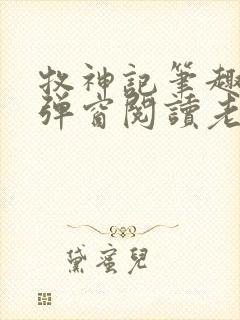 牧神記筆趣
彈窗閱讀老
黛蜜兒